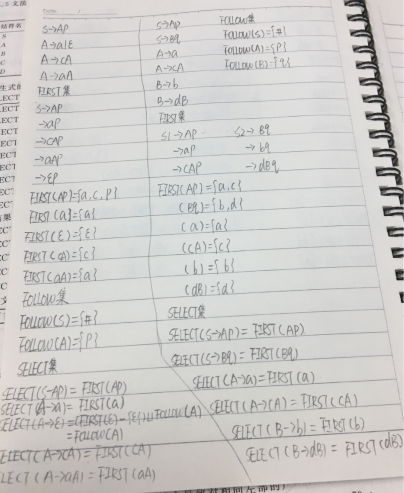 S→AP
A→a|ε
A→cA
A→aA
FIRST集
S→AP
→aP
→cAP
→aAP
→εP
FIRST(AP)={a,c,P}
FIRST(a)={a}
FIRST(ε)={ε}
FIRST(cA)={c}
FIRST(aA)={a}
FOLLOW集
FOLLOW(S)={#}
FOLLOW(A)={P}
SELECT集
SELECT(S→AP)=FIRST(AP)
SELECT(A→a)=FIRST(a)
SELECT(A→ε)=(FIRST(ε)-{ε})∪FOLLOW(A)
=FOLLOW(A)
SELECT(A→cA)=FIRST(cA)
LECT(A→aA)=FIRST(aA)
S→AP
S→Bq
A→a
A→cA
B→b
B→dB
FIRST集
S1→AP S2→Bq
→aP →bq
→cAP →dBq
FIRST(AP)={a,c}
(Bq)={b,d}
(a)={a}
(cA)={c}
(b)={b}
(dB)={d}
SELECT集
SELECT(S→AP)=FIRST(AP)
SELECT(S→Bq)=FIRST(Bq)
SELECT(A→a)=FIRST(a)
SELECT(A→cA)=FIRST(cA)
SELECT(B→b)=FIRST(b)
SELECT(B→dB)=FIRST(dB)
FOLLOW集
FOLLOW(S)={#}
FOLLOW(A)={P}
FOLLOW(B)={q}